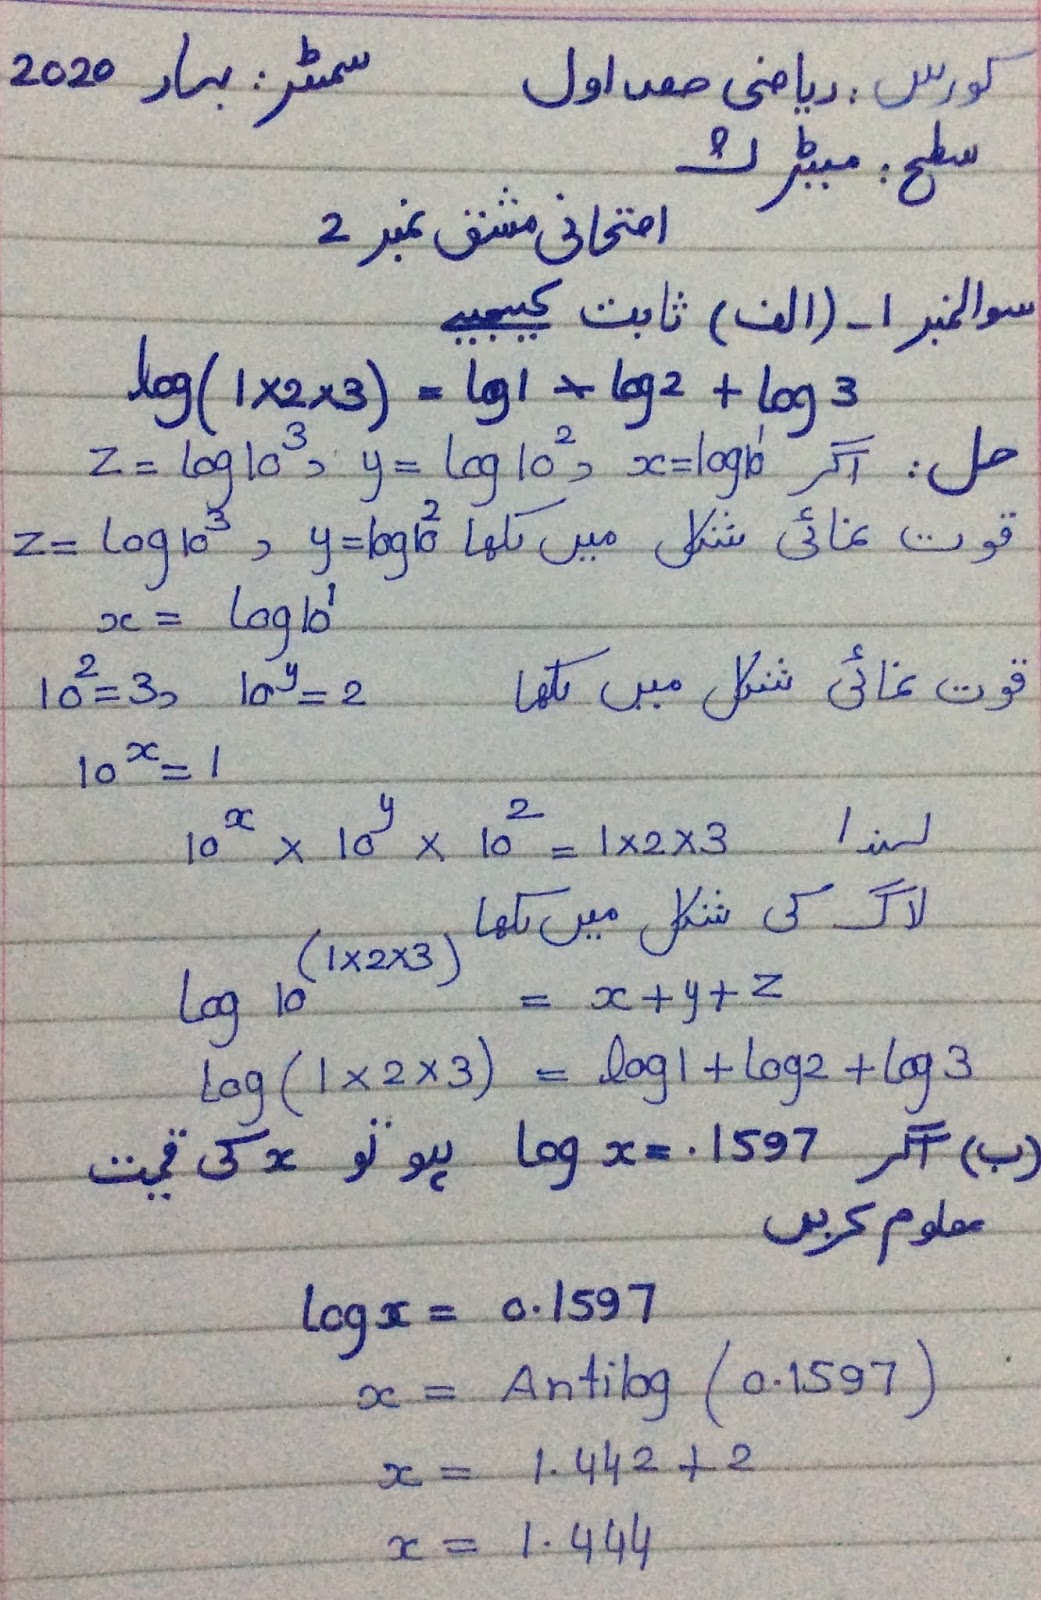 کورس: ریاضی حصہ اول سمسٹر: بہار 2020
سطح: میٹرک
امتحانی مشق نمبر 2
سوالنمبر 1- (الف) ثابت کیجیے
log(1×2×3) = log1 + log2 + log3
حل: اگر x=log10¹ ,y= log10² ,z= log10³
قوت نمائی شکل میں لکھا y=log10² , z= log10³
x= log10¹
قوت نمائی شکل میں لکھا 10²=3, 10ʸ=2
10ˣ=1
لہذا 10ˣ × 10ʸ × 10² = 1×2×3
لاگ کی شکل میں لکھا
log 10^(1×2×3) = x+y+z
log(1×2×3) = log1+log2+log3
(ب) اگر log x=.1597 ہو تو x کی قیمت
معلوم کریں
logx= 0.1597
x = Antilog (0.1597)
x = 1.442+2
x = 1.444